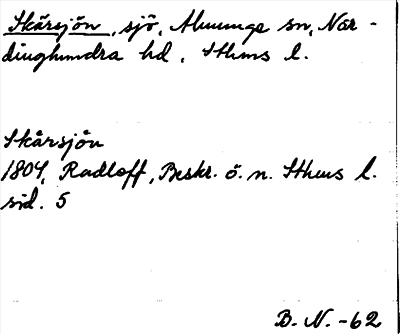 Skårsjön, sjö, Almunge sn, När-
dinghundra hd, Sthms l.
Skårsjön
1804, Radloff, Beskr. ö. n. Sthms l.
sid. 5
B. N. -62